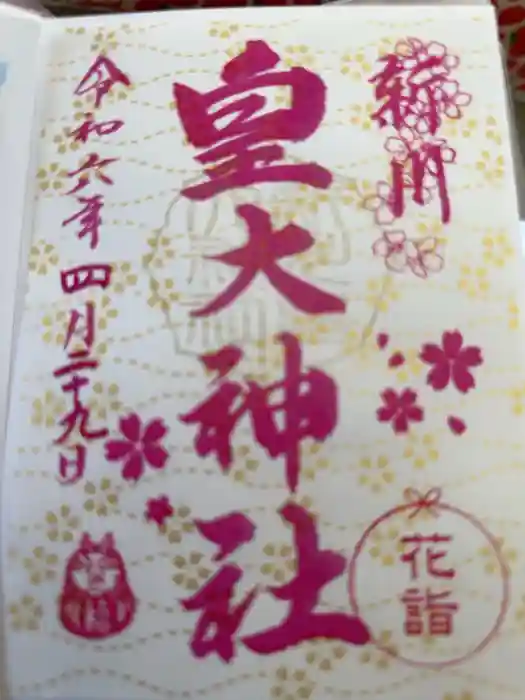 皇大神社
令和六年四月二十九日
花詣